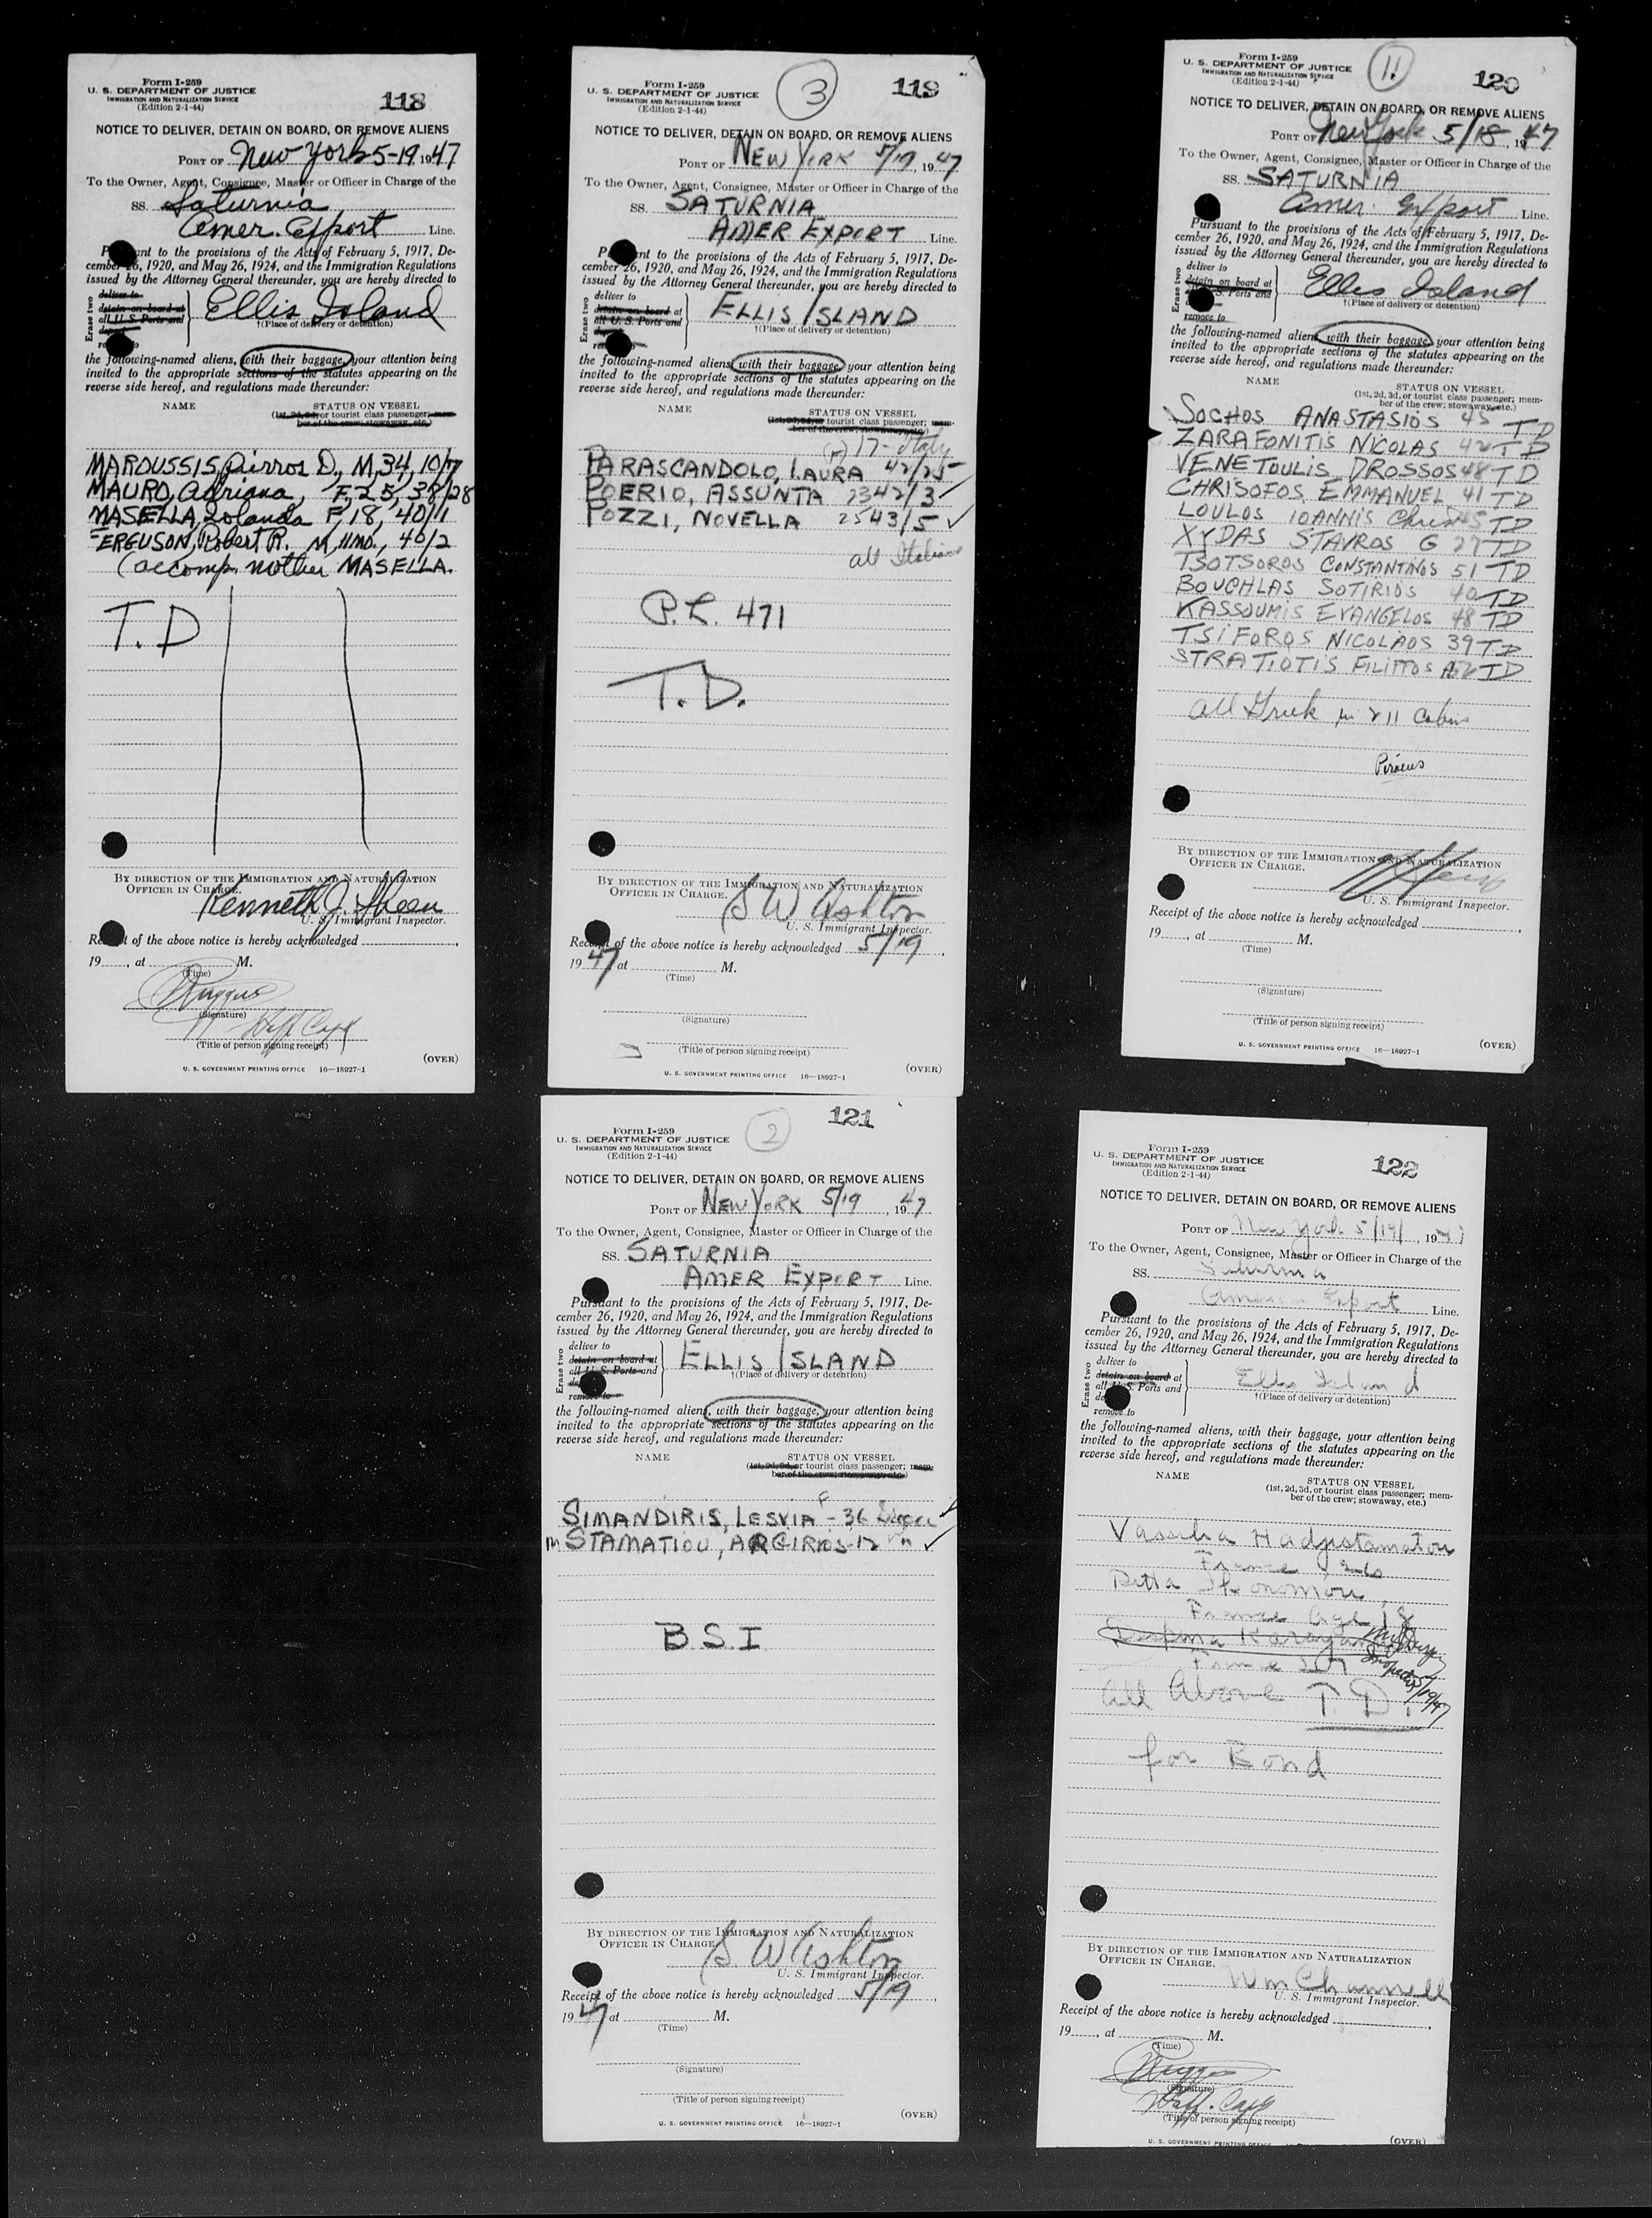 Form I-259
U. S. DEPARTMENT OF JUSTICE
IMMIGRATION AND NATURALIZATION SERVICE
(Edition 2-1-44)
118
NOTICE TO DELIVER, DETAIN ON BOARD, OR REMOVE ALIENS
PORT OF New York 5-19, 1947
To the Owner, Agent, Consignee, Master or Officer in Charge of the
SS. Saturnia
Amer. Export Line.
Pursuant to the provisions of the Acts of February 5, 1917, De-
cember 26, 1920, and May 26, 1924, and the Immigration Regulations
issued by the Attorney General thereunder, you are hereby directed to
Erase two
deliver to
detain on board at
all U. S. Ports and
remove to
Ellis Island
†(Place of delivery or detention)
the following-named aliens, with their baggage, your attention being
invited to the appropriate sections of the statutes appearing on the
reverse side hereof, and regulations made thereunder:
NAME
STATUS ON VESSEL
(1st, 2d, 3d, or tourist class passenger; mem-
ber of the crew; stowaway, etc.)
MAROUSSIS, Pierros D., M, 34, 10/7
MAURO, Adriana, F, 25, 38/28
MASELLA, Iolanda F, 18, 40/1
FERGUSON, Robert R. M, 11 mo., 40/2
(accomp. mother MASELLA.
T. D
BY DIRECTION OF THE IMMIGRATION AND NATURALIZATION
OFFICER IN CHARGE.
Kenneth J. Sheen
U. S. Immigrant Inspector.
Receipt of the above notice is hereby acknowledged
19 , at M.
(Time)
Ruggus
(Signature)
(Title of person signing receipt)
(OVER)
U. S. GOVERNMENT PRINTING OFFICE 16—18927-1
Form I-259
U. S. DEPARTMENT OF JUSTICE
IMMIGRATION AND NATURALIZATION SERVICE
(Edition 2-1-44)
3
119
NOTICE TO DELIVER, DETAIN ON BOARD, OR REMOVE ALIENS
PORT OF NEW YORK 5/19, 1947
To the Owner, Agent, Consignee, Master or Officer in Charge of the
SS. SATURNIA
AMER EXPORT Line.
Pursuant to the provisions of the Acts of February 5, 1917, De-
cember 26, 1920, and May 26, 1924, and the Immigration Regulations
issued by the Attorney General thereunder, you are hereby directed to
Erase two
deliver to
detain on board at
all U. S. Ports and
ELLIS ISLAND
†(Place of delivery or detention)
the following-named aliens, with their baggage, your attention being
invited to the appropriate sections of the statutes appearing on the
reverse side hereof, and regulations made thereunder:
NAME
STATUS ON VESSEL
(1st, 2d, 3d, or tourist class passenger; mem-
ber of the crew; stowaway, etc.)
(F) 17 - Italy
PARASCANDOLO, LAURA 42/25
POERIO, ASSUNTA 23 42/3 ✓
POZZI, NOVELLA 25 43/5 ✓
all Italians
P.L. 471
T. D.
BY DIRECTION OF THE IMMIGRATION AND NATURALIZATION
OFFICER IN CHARGE.
S W Ashton
U. S. Immigrant Inspector.
Receipt of the above notice is hereby acknowledged 5/19,
1947, at M.
(Time)
(Signature)
(Title of person signing receipt)
(OVER)
U. S. GOVERNMENT PRINTING OFFICE 16—18927-1
Form I-259
U. S. DEPARTMENT OF JUSTICE
IMMIGRATION AND NATURALIZATION SERVICE
(Edition 2-1-44)
11
120
NOTICE TO DELIVER, DETAIN ON BOARD, OR REMOVE ALIENS
PORT OF New York 5/18, 1947
To the Owner, Agent, Consignee, Master or Officer in Charge of the
SS. SATURNIA
Amer. Export Line.
Pursuant to the provisions of the Acts of February 5, 1917, De-
cember 26, 1920, and May 26, 1924, and the Immigration Regulations
issued by the Attorney General thereunder, you are hereby directed to
Erase two
deliver to
detain on board at
all U. S. Ports and
remove to
Ellis Island
†(Place of delivery or detention)
the following-named aliens, with their baggage, your attention being
invited to the appropriate sections of the statutes appearing on the
reverse side hereof, and regulations made thereunder:
NAME
STATUS ON VESSEL
(1st, 2d, 3d, or tourist class passenger; mem-
ber of the crew; stowaway, etc.)
SOCHOS ANASTASIOS 45 TD
ZARAFONITIS NICOLAS 42 TD
VENETOULIS DROSSOS 48 TD
CHRISOFOS EMMANUEL 41 TD
LOULOS IOANNIS TD
XYDAS STAVROS G 27 TD
TSOTSOROS CONSTANTINOS 51 TD
BOUCHLAS SOTIRIOS 40 TD
KASSOUMIS EVANGELOS 48 TD
TSIFOROS NICOLAOS 39 TD
STRATIOTIS FILIPPOS TD
all Greek in 211 Cabin
Piraeus
BY DIRECTION OF THE IMMIGRATION AND NATURALIZATION
OFFICER IN CHARGE.
U. S. Immigrant Inspector.
Receipt of the above notice is hereby acknowledged
19 , at M.
(Time)
(Signature)
(Title of person signing receipt)
(OVER)
U. S. GOVERNMENT PRINTING OFFICE 16—18927-1
Form I-259
U. S. DEPARTMENT OF JUSTICE
IMMIGRATION AND NATURALIZATION SERVICE
(Edition 2-1-44)
2
121
NOTICE TO DELIVER, DETAIN ON BOARD, OR REMOVE ALIENS
PORT OF NEW YORK 5/19, 1947
To the Owner, Agent, Consignee, Master or Officer in Charge of the
SS. SATURNIA
AMER EXPORT Line.
Pursuant to the provisions of the Acts of February 5, 1917, De-
cember 26, 1920, and May 26, 1924, and the Immigration Regulations
issued by the Attorney General thereunder, you are hereby directed to
Erase two
deliver to
detain on board at
all U. S. Ports and
remove to
ELLIS ISLAND
†(Place of delivery or detention)
the following-named aliens, with their baggage, your attention being
invited to the appropriate sections of the statutes appearing on the
reverse side hereof, and regulations made thereunder:
NAME
STATUS ON VESSEL
(1st, 2d, 3d, or tourist class passenger; mem-
ber of the crew; stowaway, etc.)
F
SIMANDIRIS, LESVIA - 36 Greece ✓
M STAMATIOU, ARGIRIOS - 12 " ✓
B. S. I
BY DIRECTION OF THE IMMIGRATION AND NATURALIZATION
OFFICER IN CHARGE.
S W Ashton
U. S. Immigrant Inspector.
Receipt of the above notice is hereby acknowledged 5/19,
1947, at M.
(Time)
(Signature)
(Title of person signing receipt)
(OVER)
U. S. GOVERNMENT PRINTING OFFICE 16—18927-1
Form I-259
U. S. DEPARTMENT OF JUSTICE
IMMIGRATION AND NATURALIZATION SERVICE
(Edition 2-1-44)
122
NOTICE TO DELIVER, DETAIN ON BOARD, OR REMOVE ALIENS
PORT OF New York 5/19/, 1947
To the Owner, Agent, Consignee, Master or Officer in Charge of the
SS. Saturnia
American Export Line.
Pursuant to the provisions of the Acts of February 5, 1917, De-
cember 26, 1920, and May 26, 1924, and the Immigration Regulations
issued by the Attorney General thereunder, you are hereby directed to
Erase two
deliver to
detain on board at
all U. S. Ports and
remove to
Ellis Island
†(Place of delivery or detention)
the following-named aliens, with their baggage, your attention being
invited to the appropriate sections of the statutes appearing on the
reverse side hereof, and regulations made thereunder:
NAME
STATUS ON VESSEL
(1st, 2d, 3d, or tourist class passenger; mem-
ber of the crew; stowaway, etc.)
Vassilia Hadjistamatou
France 26
Ikonomou
France Age 18
France
Inspector 5/19/47
All Above T. D.
for Bond
BY DIRECTION OF THE IMMIGRATION AND NATURALIZATION
OFFICER IN CHARGE.
Wm Channell
U. S. Immigrant Inspector.
Receipt of the above notice is hereby acknowledged
19 , at M.
(Time)
Ruggus
(Signature)
(Title of person signing receipt)
(OVER)
U. S. GOVERNMENT PRINTING OFFICE